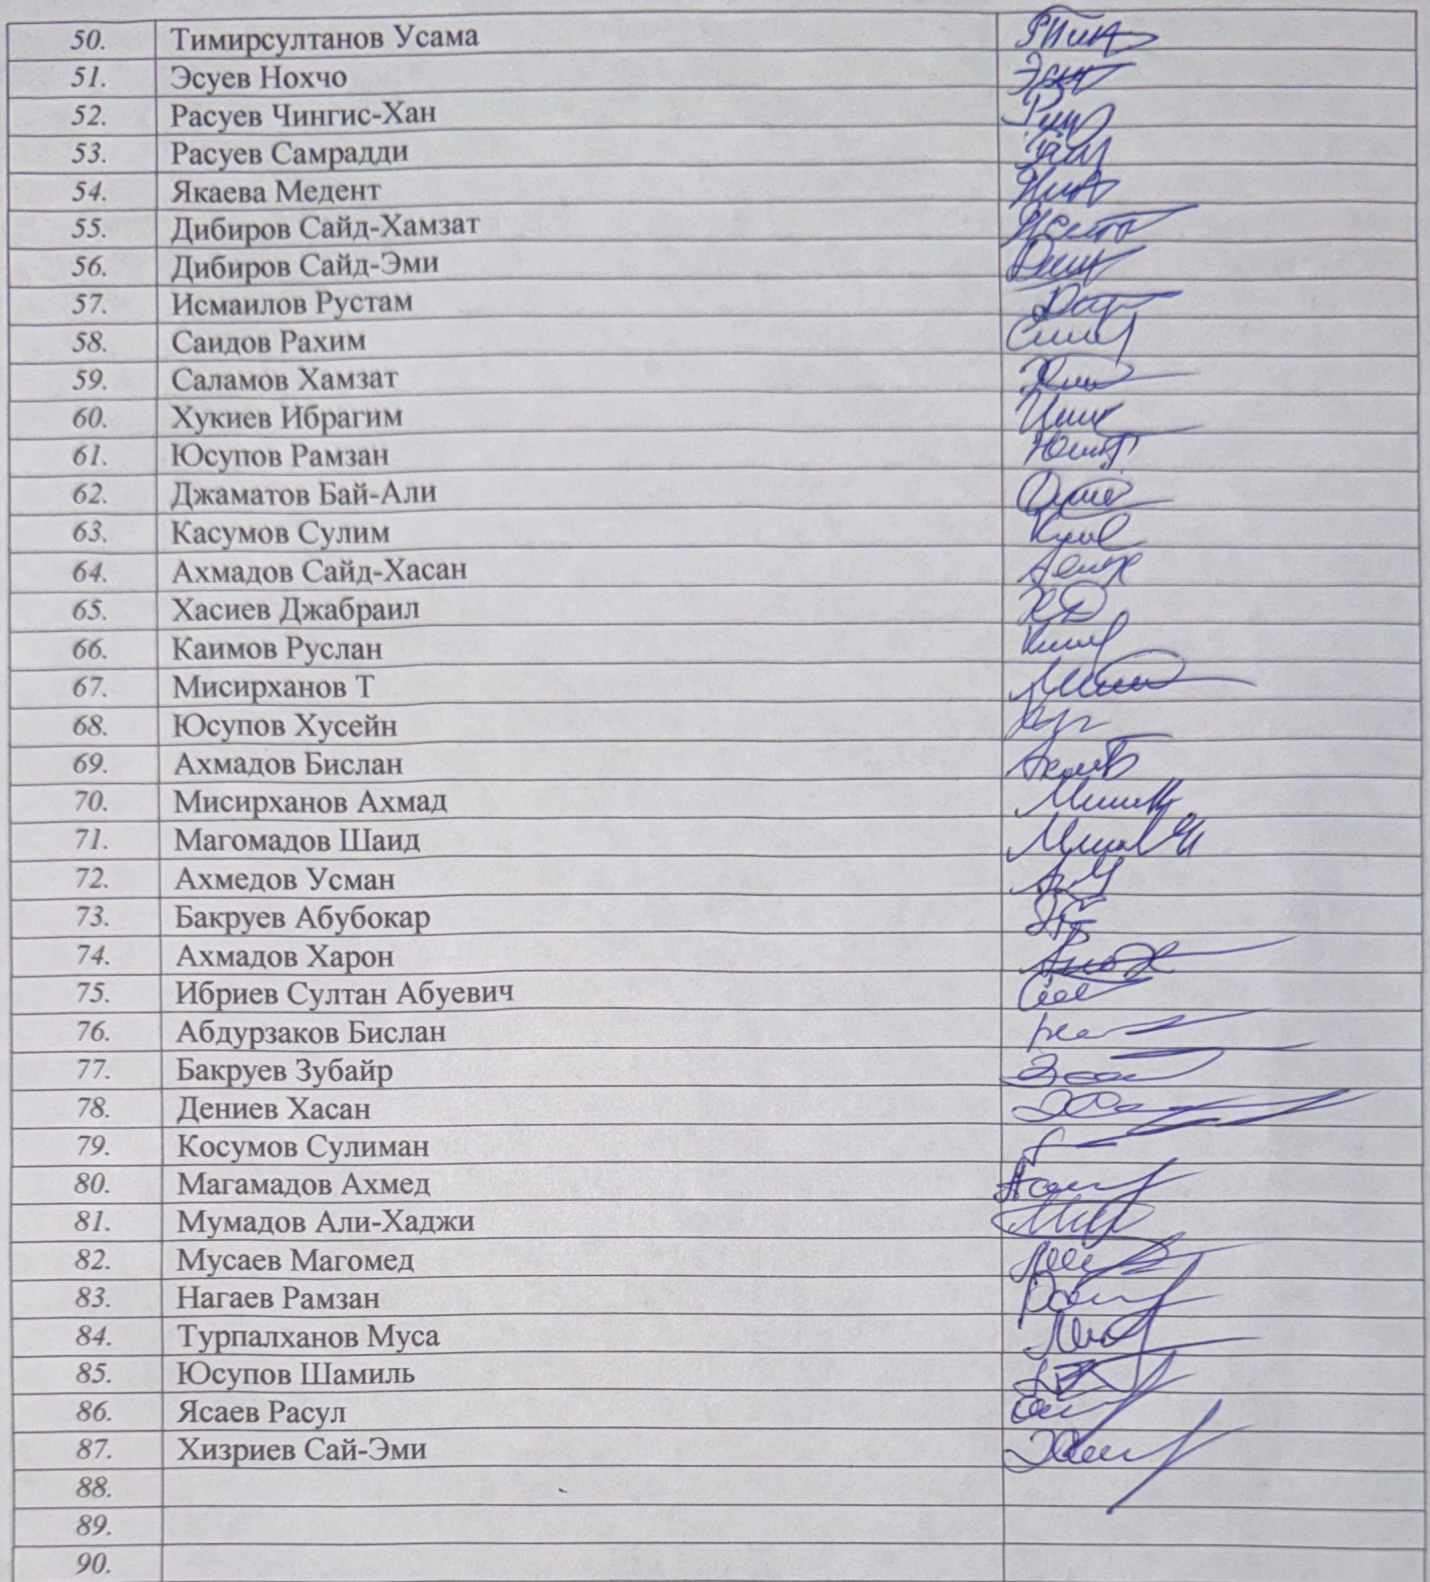 50. Тимирсултанов Усама
51. Эсуев Нохчо
52. Расуев Чингис-Хан
53. Расуев Самрадди
54. Якаева Медент
55. Дибиров Сайд-Хамзат
56. Дибиров Сайд-Эми
57. Исмаилов Рустам
58. Саидов Рахим
59. Саламов Хамзат
60. Хукиев Ибрагим
61. Юсупов Рамзан
62. Джаматов Бай-Али
63. Касумов Сулим
64. Ахмадов Сайд-Хасан
65. Хасиев Джабраил
66. Каимов Руслан
67. Мисирханов Т
68. Юсупов Хусейн
69. Ахмадов Бислан
70. Мисирханов Ахмад
71. Магомадов Шаид
72. Ахмедов Усман
73. Бакруев Абубокар
74. Ахмадов Харон
75. Ибриев Султан Абуевич
76. Абдурзаков Бислан
77. Бакруев Зубайр
78. Дениев Хасан
79. Косумов Сулиман
80. Магамадов Ахмед
81. Мумадов Али-Хаджи
82. Мусаев Магомед
83. Нагаев Рамзан
84. Турпалханов Муса
85. Юсупов Шамиль
86. Ясаев Расул
87. Хизриев Сай-Эми
88.
89.
90.